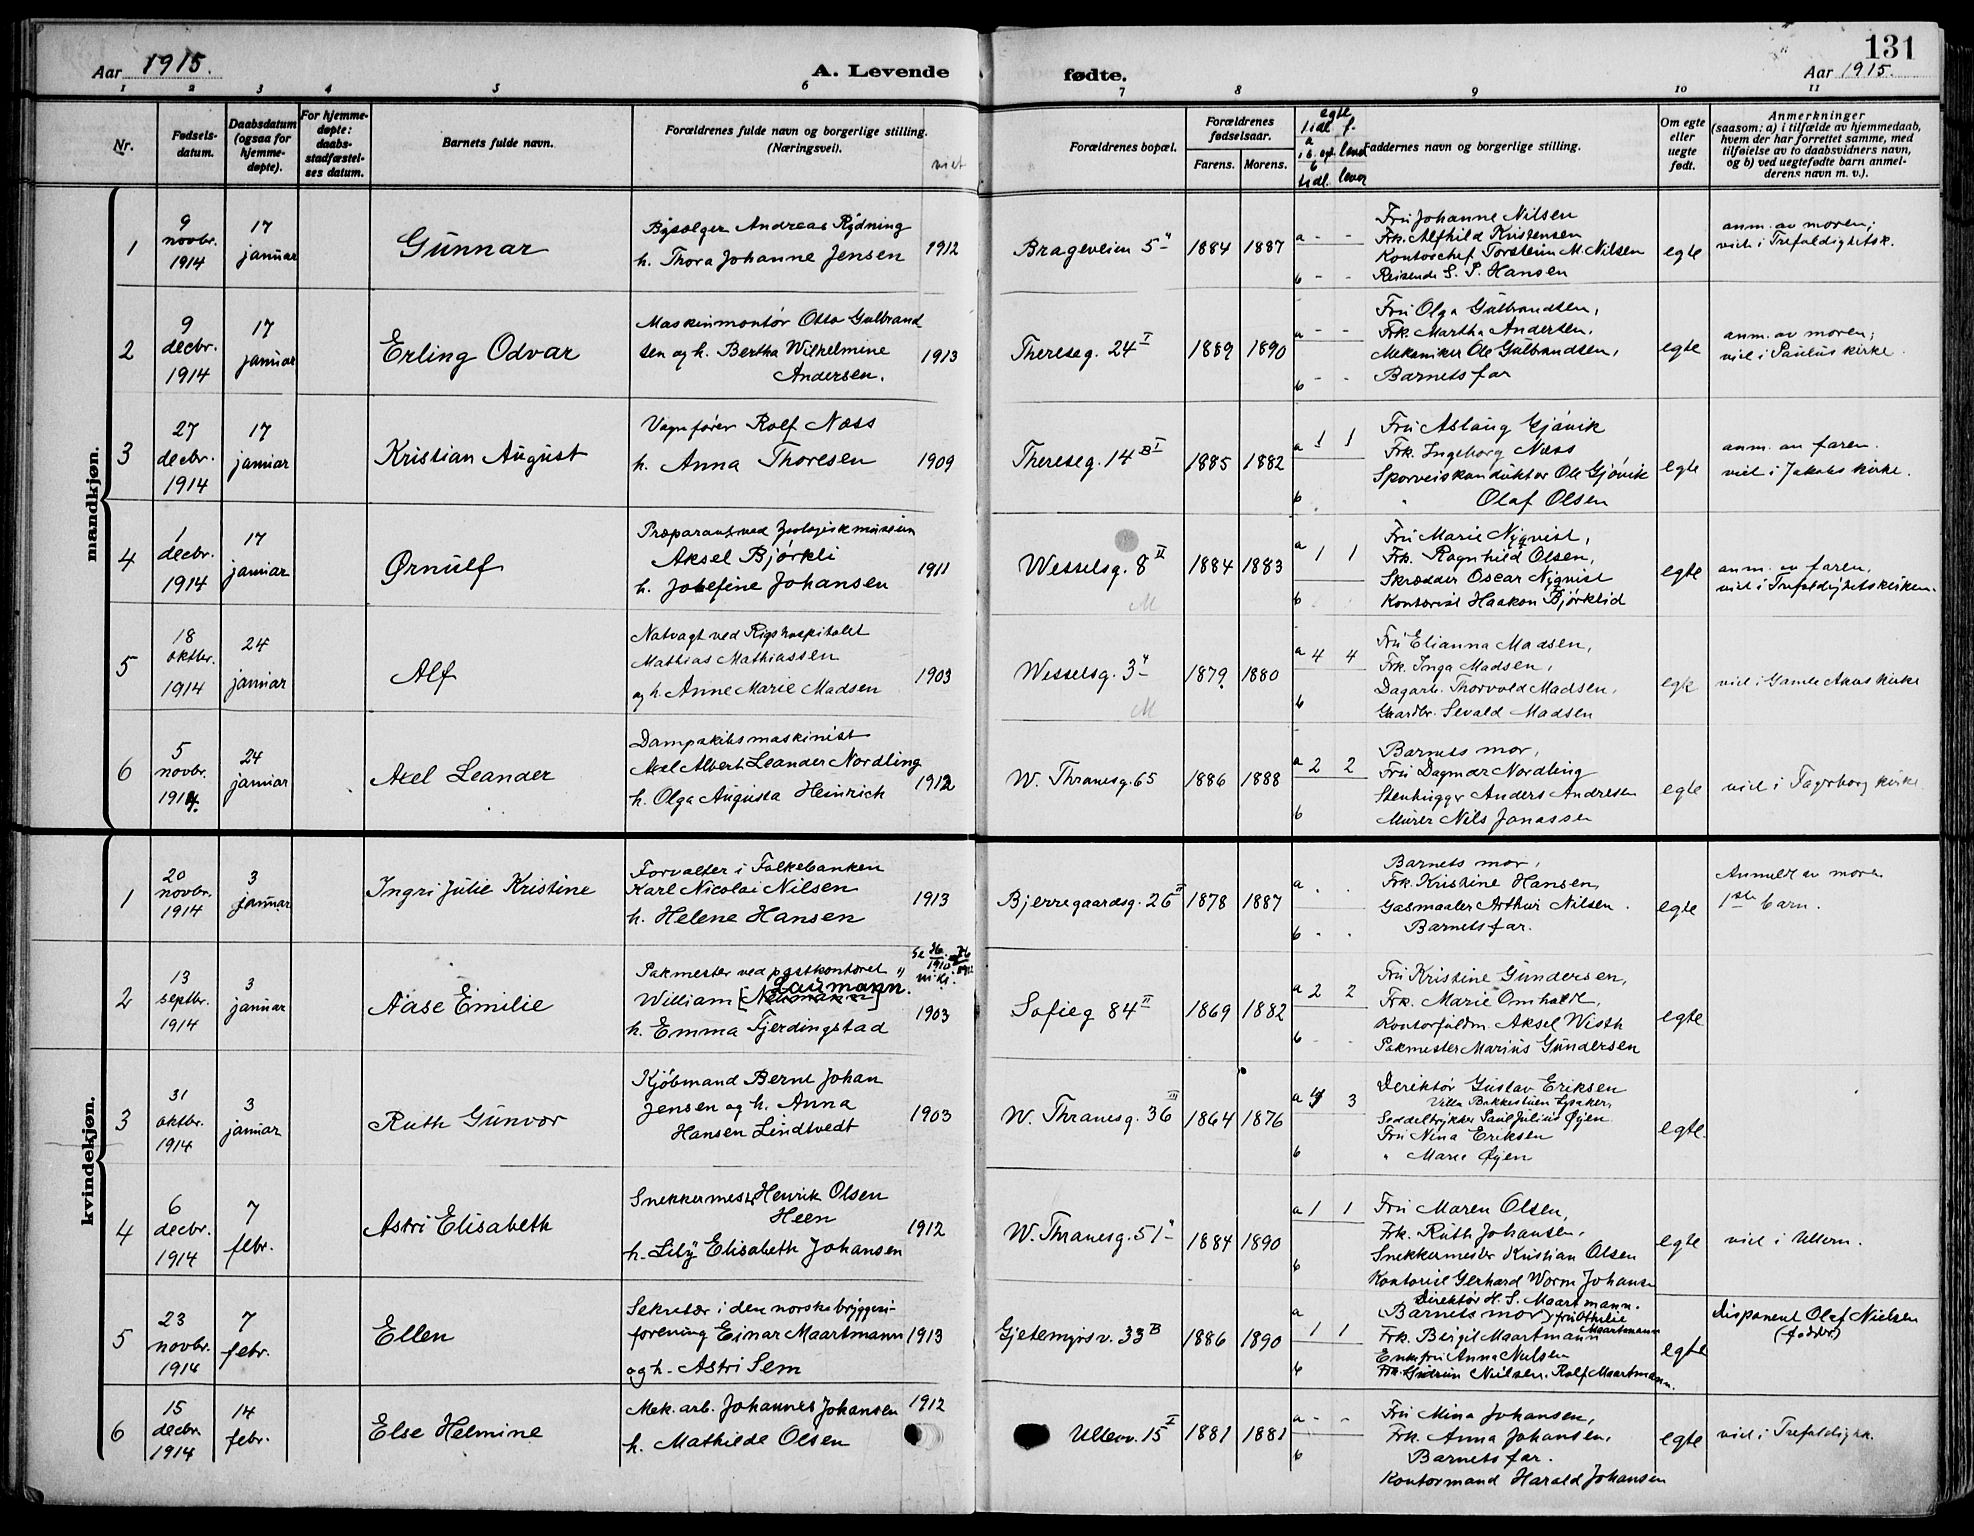 Aar 1915. A. Levende fødte. Aar 1915. 131
1 2 3 4 5 6 7 8 9 10 11
Nr.
Fødsels-
datum.
Daabsdatum
(ogsaa for
hjemme-
døpte).
For hjemme-
døpte:
daabs-
stadfæstel-
ses datum.
Barnets fulde navn.
Forældrenes fulde navn og borgerlige stilling.
(Næringsvei).
viet
Forældrenes bopæl.
Forældrenes
fødselsaar.
Farens. Morens.
egte
tidl. f.
a
b
tidl. lever
Faddernes navn og borgerlige stilling.
Om egte
eller
uegte
født.
Anmerkninger
(saasom: a) i tilfælde av hjemmedaab,
hvem der har forrettet samme, med
tilføielse av to daabsvidners navn,
og b) ved uegtefødte barn anmel-
derens navn m. v.).
mandkjøn.
1
9
novbr.
1914
17
januar
Gunnar
Bysælger Andreas Rydning
h. Thora Johanne Jensen
1912
Brageveien 5
1884 1887
a - -
b - -
Fru Johanne Nilsen
Frk. Alfhild Kristensen
Kontorchef Torstein M. Nilsen
Reisende S. P. Hansen
egte
anm. av moren;
viet i Trefoldighetsk.
2
9
decbr.
1914
17
januar
Erling Odvar
Maskinmontør Otto Gulbrand
sen og h. Bertha Wilhelmine
Andersen.
1913
Thereseg. 24 I
1889 1890
a - -
b - -
Fru Olga Gulbrandsen,
Frk. Martha Andersen,
Mekaniker Ole Gulbrandsen,
Barnets far
egte
anm. av moren;
viet i Paulus kirke.
3
27
decbr.
1914
17
januar
Kristian August
Vognfører Rolf Næss
h. Anna Thoresen
1909
Thereseg. 14 B I
1885 1882
a 1 1
b
Fru Aslaug Gjøvik
Frk. Ingeborg Næss
Sporveiskonduktør Ole Gjøvik
" Olaf Olsen
egte
anm. av faren.
viet i Jakobs kirke.
4
1
decbr.
1914
17
januar
Ørnulf
Præparant ved Zoologisk museum
Aksel Bjørkli
h. Josefine Johansen
1911
Wesselsg. 8 II
M
1884 1883
a 1 1
b
Fru Marie Nyqvist,
Frk. Ragnhild Olsen,
Skrædder Oscar Nyqvist
Kontorist Haakon Bjørklid
egte
anm. av faren,
viet i Trefoldighetskirken.
5
18
oktbr.
1914
24
januar
Alf
Natvagt ved Rigshospitalet
Mathias Mathiassen
og h. Anne Marie Madsen
1903
Wesselsg. 3
M
1879. 1880
a 4 4
b
Fru Elianna Madsen,
Frk. Inga Madsen,
Dagarb. Thorvald Madsen,
Gaardbr. Sevald Madsen
egte
viet i Gamle Akers kirke
6
5
novbr.
1914.
24
januar
Axel Leander
Dampskibsmaskinist
Axel Albert Leander Nordling
h. Olga Augusta Heinrich
1912
W. Thranesg. 65
1886 1888
a 2 2
b
Barnets mor,
Fru Dagmar Nordling
Stenhugger Anders Andresen
Murer Nils Jonassen
egte
viet i Fagerborg kirke
kvindekjøn.
1
20
novbr.
1914
3
januar
Ingri Julie Kristine
Forvalter i Folkebanken
Karl Nicolai Nilsen
h. Helene Hansen
1913
Bjerregaardsg. 26 II
1878 1887
a
b
Barnets mor,
Frk. Kristine Hansen,
Gasmaaler Arthur Nilsen.
Barnets far.
egte
Anmeldt av moren
1ste barn.
2
13
septbr.
1914
3
januar
Aase Emilie
Pakmester ved postkontoret
Laumann.
William [Neumann]
h. Emma Fjerdingstad
1903
Sofieg 84 II
1869 1882
a 2 2
b - -
Fru Kristine Gundersen,
Frk. Marie Omholdt,
Kontorfuldm. Aksel Wisth
Pakmester Marius Gundersen
egte
3
31
oktbr.
1914
3
januar
Ruth Gunvor
Kjøbmand Bernt Johan
Jensen og h. Anna
Hansen Lindtvedt
1903
W. Thranesg. 36 III
1864 1876
a 4 3
b
Direktør Gustav Eriksen
Villa Bakkestuen Lysaker,
Seddeltrykker Paul Julius Øyen
Fru Nina Eriksen
" Marie Øyen
egte.
4
6
decbr.
1914
7
febr.
Astri Elisabeth
Snekkermester Henrik Olsen
Heen
h. Lily Elisabeth Johansen
1912
W. Thranesg. 51
1884 1890
a 1 1
b
Fru Maren Olsen,
Frk. Ruth Johansen,
Snekkermester Kristian Olsen
Kontorist Gerhard Worm Johansen
egte
viet i Ullern.
5
23
novbr.
1914
7
febr.
Ellen
Sekretær i den norske bryggeri-
forening Einar Maartmann
og h. Astri Sem
1913
Gjetemyrsv. 33 B
1886 1890
a
1 1
b
Direktør H. S. Maartmann.
(Barnets mor) fru Othilie
Maartmann
Frk. Birgit Maartmann
Enkefru Anna Nielsen
Frk. Gudrun Nielsen. Rolf Maartmann.
egte
Disponent Olaf Nielsen
(fadder)
6
15
decbr.
1914
14
febr.
Else Helmine
Mek. arb. Johannes Johansen
h. Mathilde Olsen
1912
Ullevv. 15 I
1881 1881
a - -
b
Fru Mina Johansen,
Frk. Anna Johansen,
Barnets far.
Kontormand Harald Johansen
egte
viet i Trefoldigk.